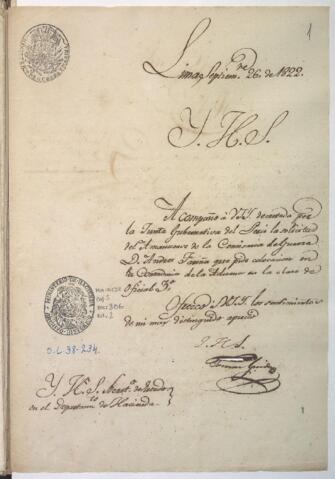 1
Lima, Septiem.re 26. de 1822.
Y. H. S.
Acompaño á VSY decretada por
la Junta Gubernativa del Perú la solicitud
del Amanuense de la Comisaria de Guerra
D. Andres Fariña que pide colocacion en
la Contaduria de la Aduana en la clase de
Oficial 3.º
Ofrezco á V.S.Y. los sentimientos
de mi muy distinguido aprecio
Y. H. S.
Tomas Guido
Y. H. S. Secret.º de Estado
en el Departam.to de Hacienda.
O.L. 38-234.